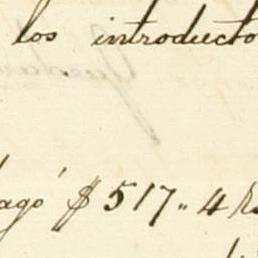 los introducto
agó $ 517 " 4 R